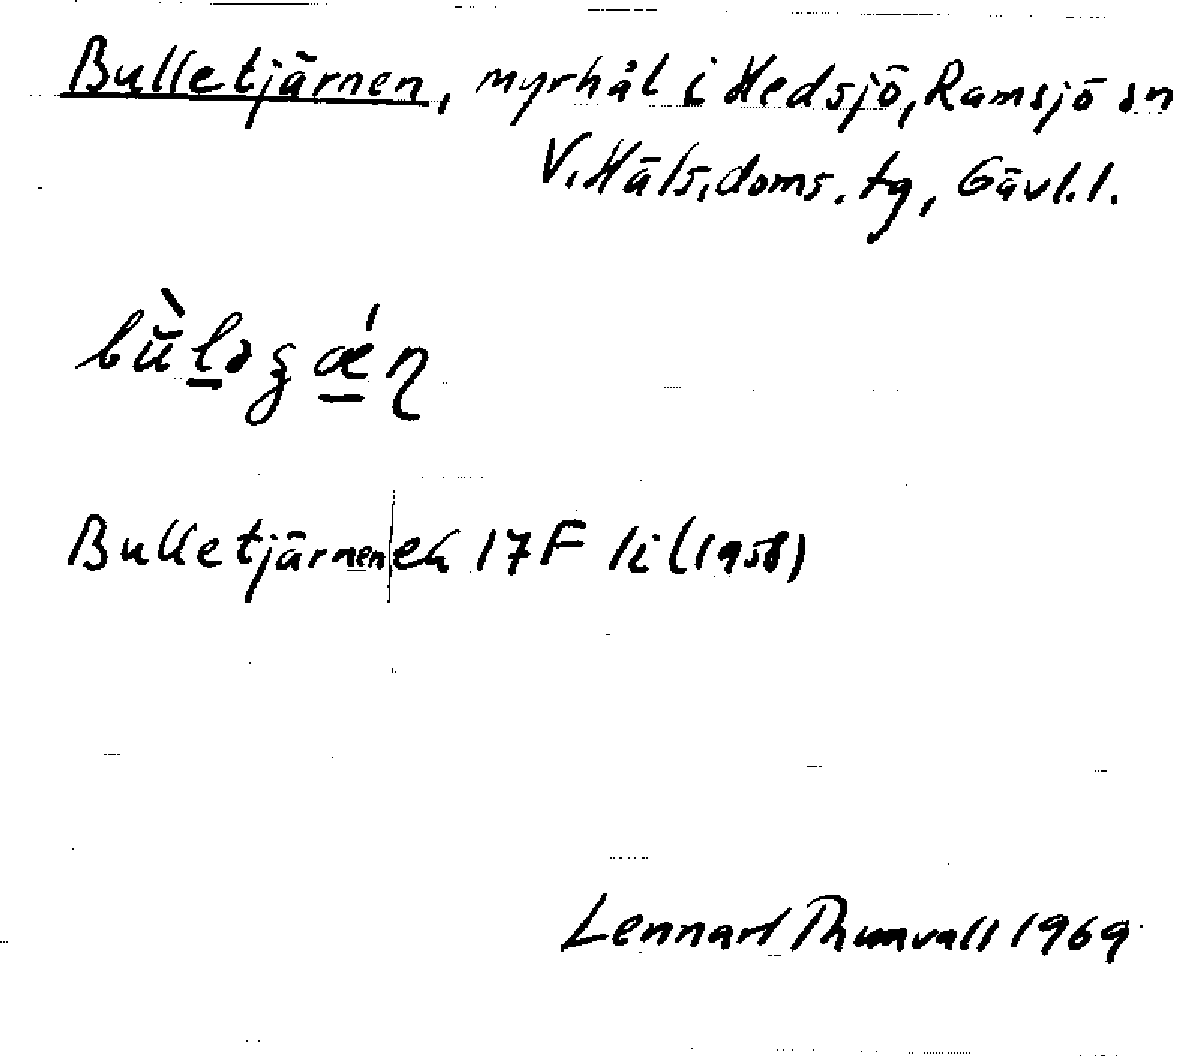 Bulletjärnen, myrhål i Hedsjö, Ramsjö sn
V. Häls. doms. tg, Gävl. l.
Bulletjärnen ek 17F
(1958)
Lennart Thunvall 1969